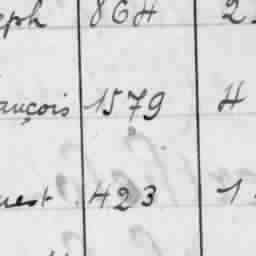 eph 864 2
ançois 1579 4
nest 423 1